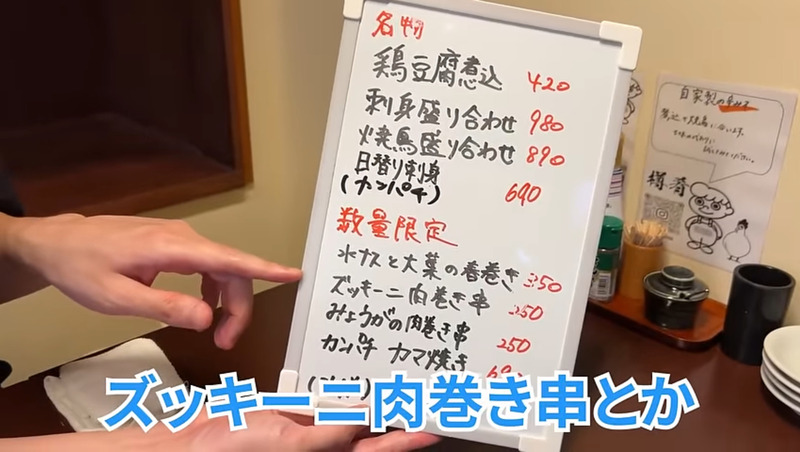 名物
鶏豆腐煮込 420
刺身盛り合わせ 980
焼鳥盛り合わせ 890
日替り刺身
(カンパチ) 690
数量限定
水ナスと大葉の春巻き 350
ズッキーニ肉巻き串 250
みょうがの肉巻き串 250
カンパチ カマ焼き
自家製の
樽酒
ズッキーニ肉巻き串とか